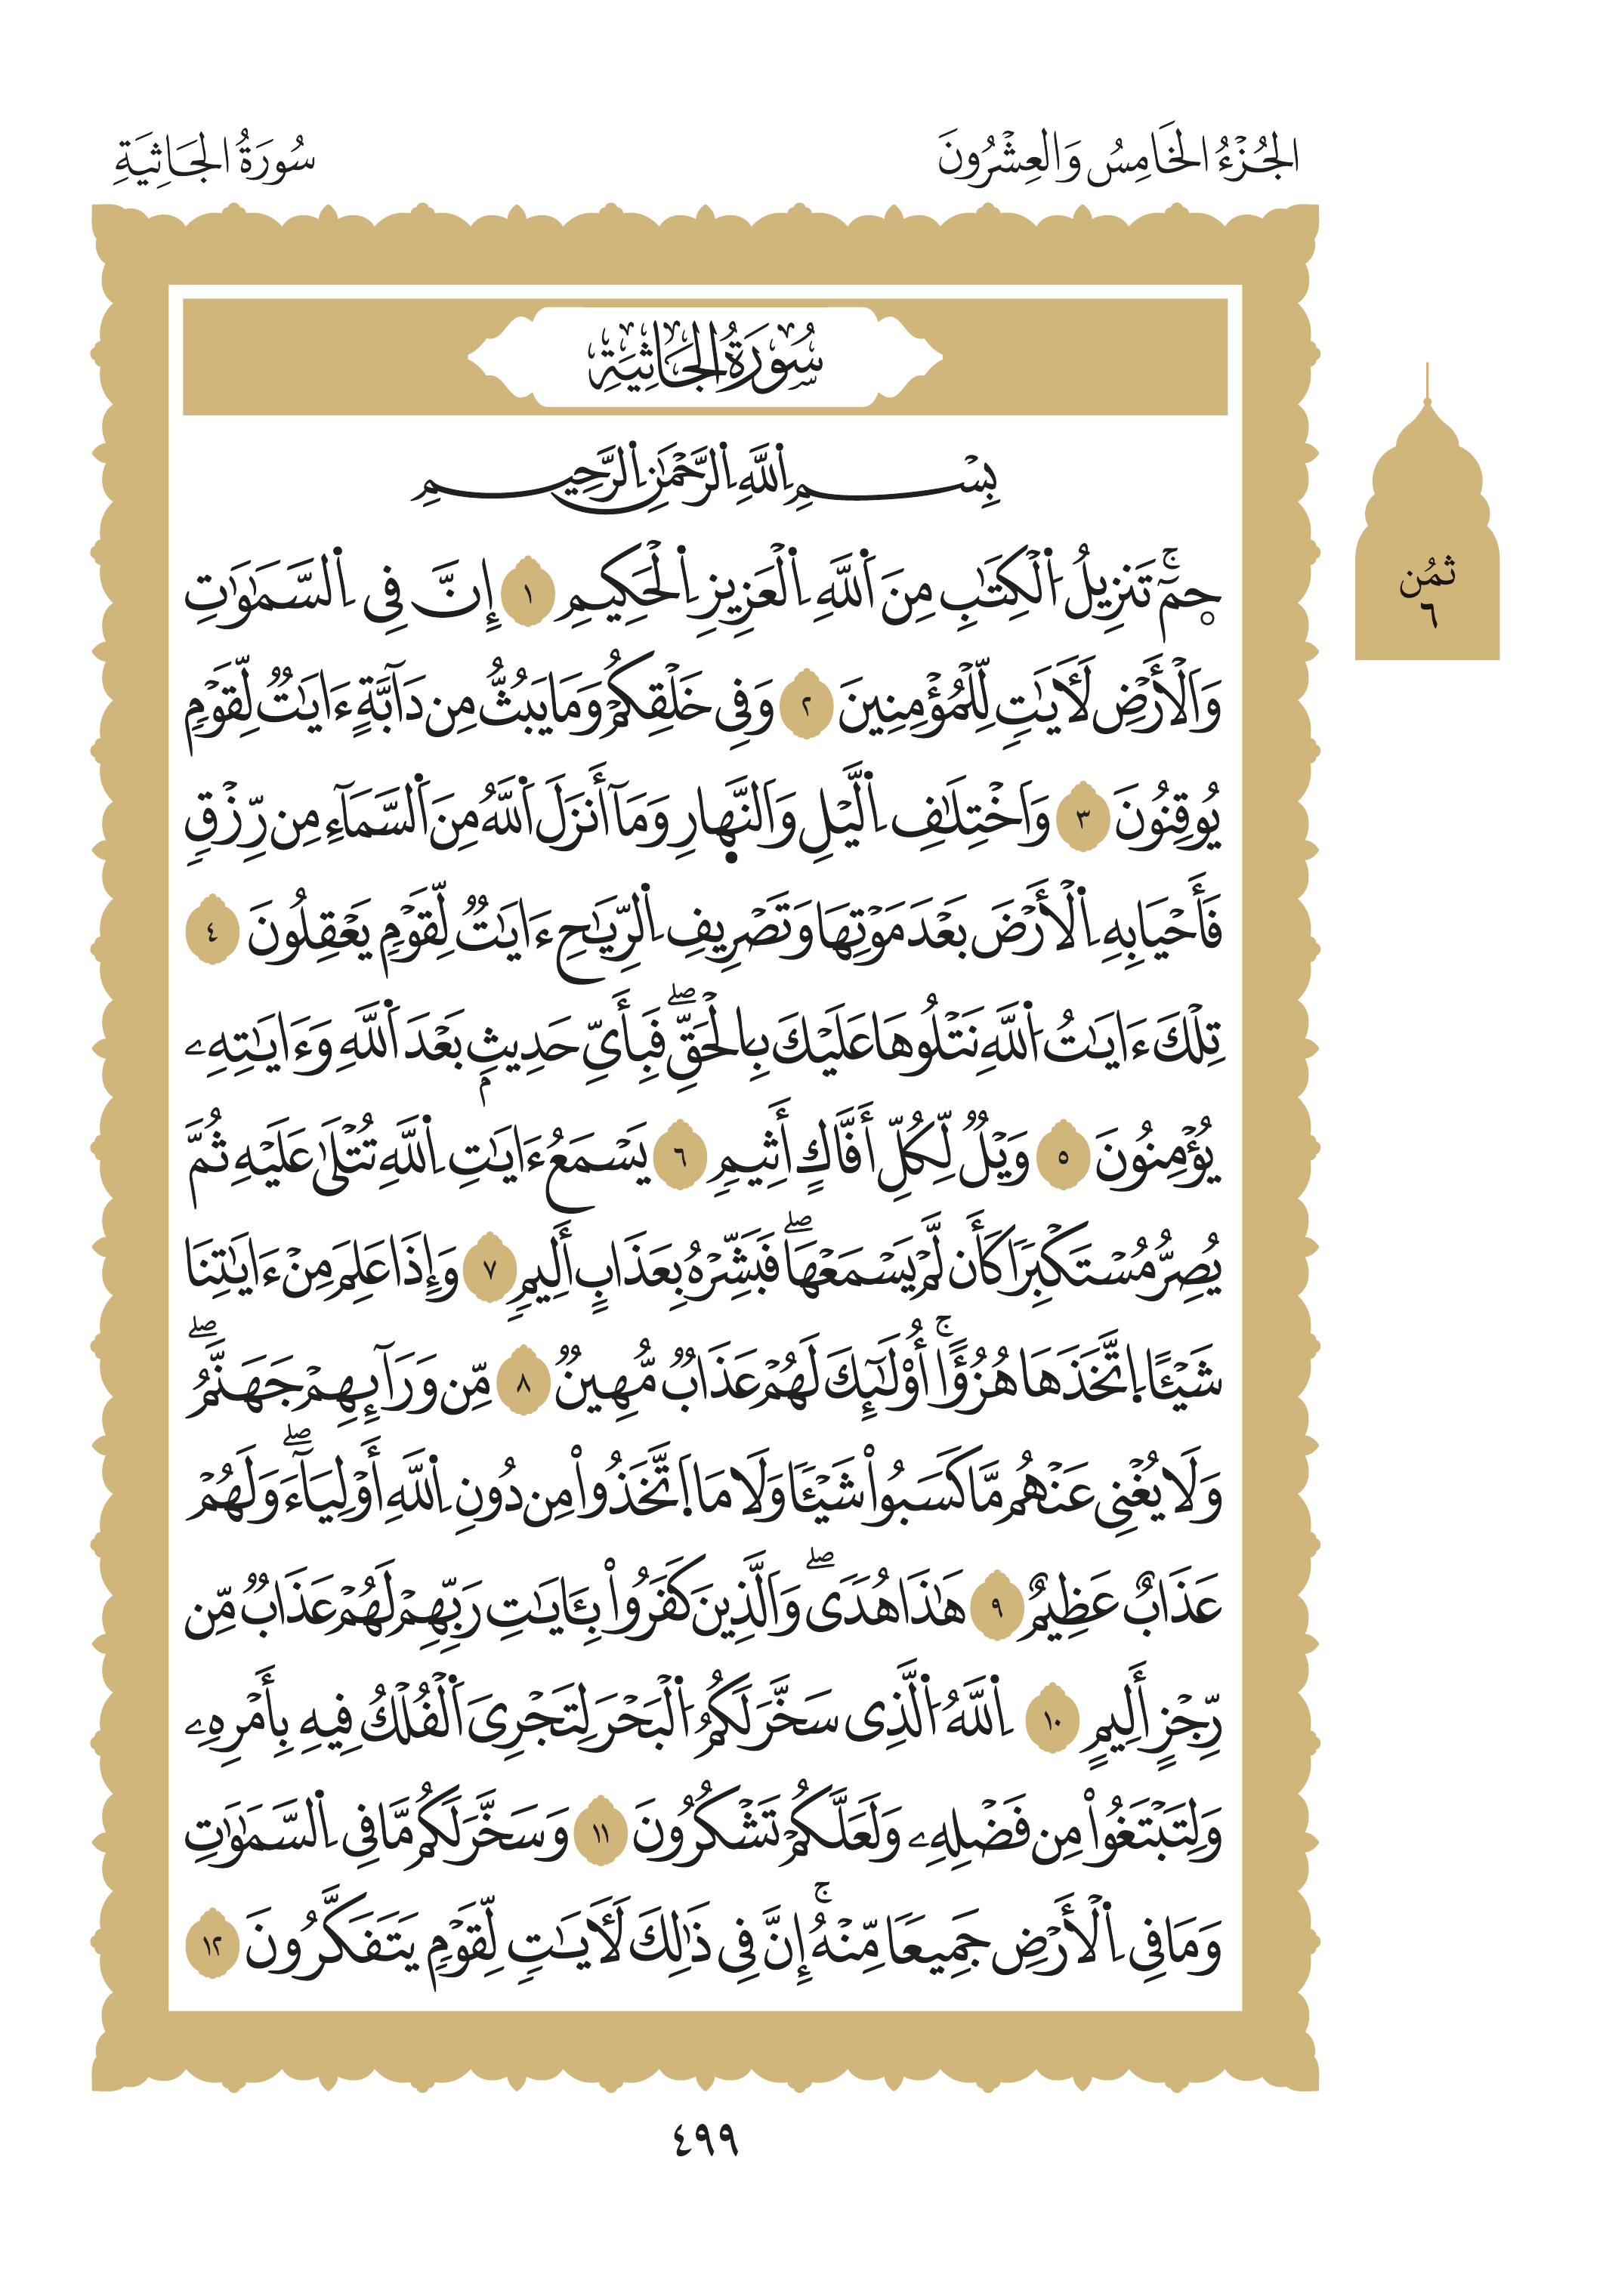 الجُزْءُ الخَامِسُ وَالعِشْرُونَ
سُورَةُ الجَاثِيَةِ
سُورَةُ الجَاثِيَةِ
ثُمُن
٦
بِسْمِ اِللَّهِ اِلرَّحْمَٰنِ اِلرَّحِيمِ
حمٓۚ تَنزِيلُ اُ۬لْكِتَٰبِ مِنَ اَ۬للَّهِ اِ۬لْعَزِيزِ اِ۬لْحَكِيمِ ١ إِنَّ فِى اِ۬لسَّمَٰوَٰتِ
وَالْأَرْضِ لَأٓيَٰتٖ لِّلْمُؤْمِنِينَ ٢ وَفِى خَلْقِكُمْ وَمَا يَبُثُّ مِن دَآبَّةٍ ءَايَٰتٞ لِّقَوْمٖ
يُوقِنُونَ ٣ وَاخْتِلَٰفِ اِ۬لَّيْلِ وَالنَّهارِ وَمَآ أَنزَلَ اَ۬للَّهُ مِنَ اَ۬لسَّمَآءِ مِن رِّزْقٖ
فَأَحْيَا بِهِ اِ۬لْأَرْضَ بَعْدَ مَوْتِهَا وَتَصْرِيفِ اِ۬لرِّيَٰحِ ءَايَٰتٞ لِّقَوْمٖ يَعْقِلُونَ ٤
تِلْكَ ءَايَٰتُ اُ۬للَّهِ نَتْلُوهَا عَلَيْكَ بِالْحَقِّۖ فَبِأَيِّ حَدِيثِۢ بَعْدَ اَ۬للَّهِ وَءَايَٰتِهِۦ
يُؤْمِنُونَ ٥ وَيْلٞ لِّكُلِّ أَفَّاكٍ أَثِيمٖ ٦ يَسْمَعُ ءَايَٰتِ اِ۬للَّهِ تُتْلَىٰ عَلَيْهِ ثُمَّ
يُصِرُّ مُسْتَكْبِرٗا كَأَن لَّمْ يَسْمَعْهَاۖ فَبَشِّرْهُ بِعَذَابٍ أَلِيمٖ ٧ وَإِذَا عَلِمَ مِنْ ءَايَٰتِنَا
شَيْـًٔا اِ۪تَّخَذَهَا هُزُؤًاۚ أُوْلَٰٓئِكَ لَهُمْ عَذَابٞ مُّهِينٞ ٨ مِّن وَرَآئِهِمْ جَهَنَّمُۖ
وَلَا يُغْنِى عَنْهُم مَّا كَسَبُواْ شَيْـٔٗا وَلَا مَا اَ۪تَّخَذُواْ مِن دُونِ اِ۬للَّهِ أَوْلِيَآءَۖ وَلَهُمْ
عَذَابٌ عَظِيمٌ ٩ هَٰذَا هُدٗىۖ وَالَّذِينَ كَفَرُواْ بِـَٔايَٰتِ رَبِّهِمْ لَهُمْ عَذَابٞ مِّن
رِّجْزٍ أَلِيمٍ ١٠ اِ۬للَّهُ اُ۬لَّذِى سَخَّرَ لَكُمُ اُ۬لْبَحْرَ لِتَجْرِىَ اَ۬لْفُلْكُ فِيهِ بِأَمْرِهِۦ
وَلِتَبْتَغُواْ مِن فَضْلِهِۦ وَلَعَلَّكُمْ تَشْكُرُونَ ١١ وَسَخَّرَ لَكُم مَّا فِى اِ۬لسَّمَٰوَٰتِ
وَمَا فِى اِ۬لْأَرْضِ جَمِيعٗا مِّنْهُۚ إِنَّ فِى ذَٰلِكَ لَأٓيَٰتٖ لِّقَوْمٖ يَتَفَكَّرُونَ ١٢
٤٩٩